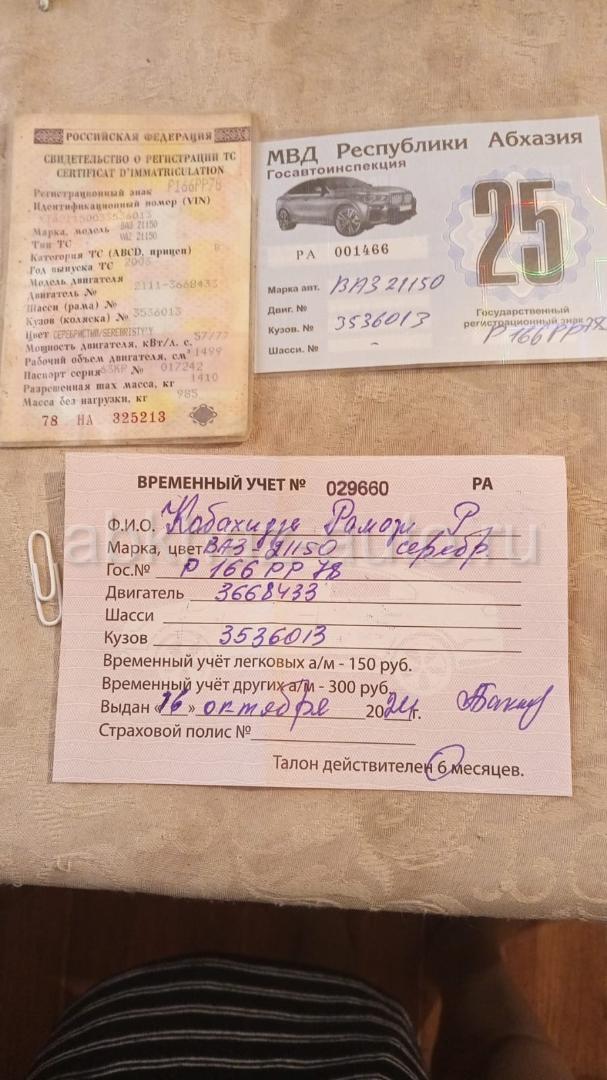 РОССИЙСКАЯ ФЕДЕРАЦИЯ
СВИДЕТЕЛЬСТВО О РЕГИСТРАЦИИ ТС
CERTIFICAT D'IMMATRICULATION
Регистрационный знак Р166РР78
Идентификационный номер (VIN)
Марка, модель ВАЗ 21150
VAZ 21150
Тип ТС
Категория ТС (ABCD, прицеп) B
Год выпуска ТС
Модель двигателя
Двигатель № 2111-3668433
Шасси (рама) №
Кузов (коляска) № 3536013
Цвет СЕРЕБРИСТЫЙ/SEREBRISTYY
Мощность двигателя, кВт/л. с. 57/77
Рабочий объем двигателя, см³ 1499
Паспорт серия 63КР № 017242
Разрешенная max масса, кг 1410
Масса без нагрузки, кг 985
78 НА 325213
МВД Республики Абхазия
Госавтоинспекция
25
РА 001466
Марка авт. ВАЗ 21150
Двиг. №
Кузов. № 3536013
Шасси. № -
Государственный
регистрационный знак
Р 166 РР 78
ВРЕМЕННЫЙ УЧЕТ № 029660 РА
Ф.И.О. Кобахидзе Рамази Р
Марка, цвет ВАЗ-21150 серебр.
Гос.№ Р 166 РР 78
Двигатель 3668433
Шасси
Кузов 3536013
Временный учёт легковых а/м - 150 руб.
Временный учёт других а/м - 300 руб.
Выдан «16» октября 2024г.
Страховой полис №
Талон действителен 6 месяцев.